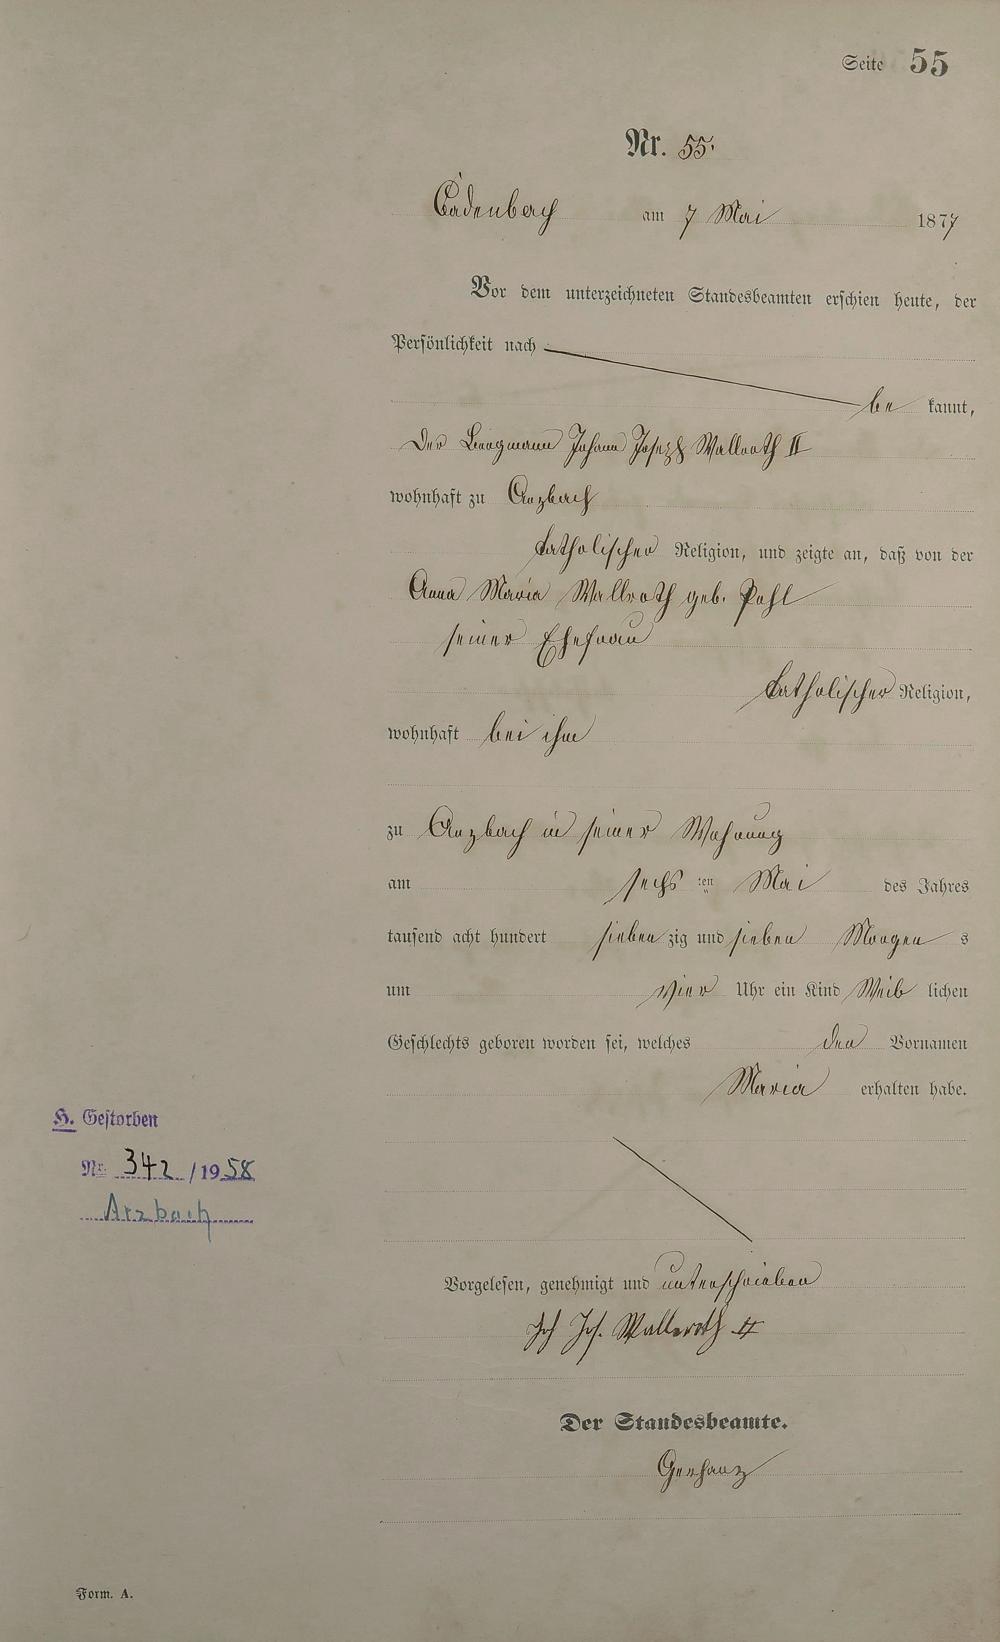 Seite 55
Nr. 55.
Cadenbach am 7 Mai 1877
Vor dem unterzeichneten Standesbeamten erschien heute, der
Persönlichkeit nach
be kannt,
der Bergmann Johann Joseph Wallroth II
wohnhaft zu Arzbach
katholischer Religion, und zeigte an, daß von der
Anna Maria Wallroth geb. Pohl
seiner Ehefrau
katholischer Religion,
wohnhaft bei ihm
zu Arzbach in seiner Wohnung
am sechs ten Mai des Jahres
tausend acht hundert sieben zig und sieben Morgen s
um vier Uhr ein Kind Weib lichen
Geschlechts geboren worden sei, welches den Vornamen
Maria erhalten habe.
H. Gestorben
Nr. 342 / 1958
Arzbach
Vorgelesen, genehmigt und unterschrieben
Joh Jos. Walleroth II
Der Standesbeamte.
Gerhanz
Form. A.